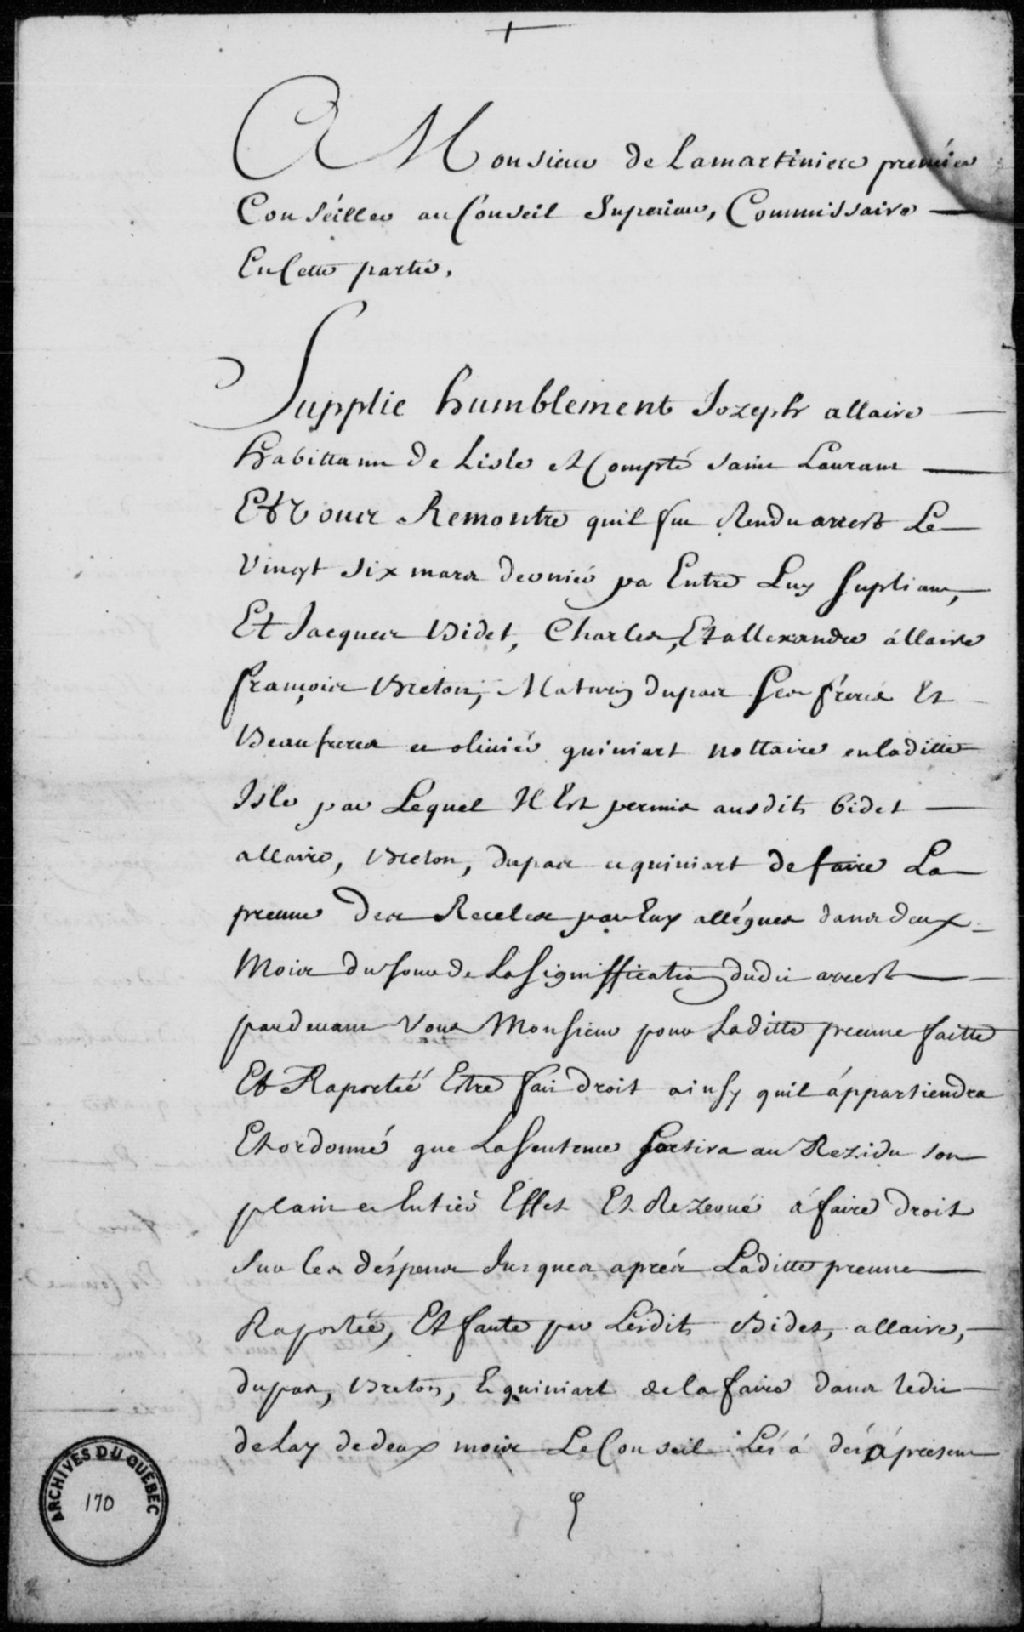 A Monsieur de Lamartiniere premier
Conseiller au Conseil Superieur, Commissaire
En Cette partie,
Supplie humblement Jozeph allaire
habittant de Lisle et Compté saint Laurant
Et Vous Remontre quil fut Rendu arrest Le
Vingt six mars dernier pa Entre Luy Supliant,
Et Jacques Bidet, Charles, Et allexandre allaire
françois Breton, Maturin dupas Ses fréres Et
Beaufreres et olivié quiniart nottaire en laditte
Isle par Lequel Il Est permis ausdits bidet
allaire, Breton, dupas et quiniart de faire La
preuve des Receles par Eux allégués dans deux
Mois du Jour de La Signiffication dudit arrest
pardevant Vous Monsieur pour Laditte preuve faitte
Et Raportéé Estre fait droit ainsy quil áppartiendra
Et ordonné que La Sentence Sortira au Rezidu son
plain et Entier Effet Et Rezervé á faire droit
sur les déspens Jusques aprés Laditte preuve
Raportéé, Et faute par Lesdits Bidet, allaire,
dupas, Breton, Et quiniart de la faire dans ledit
delay de deux mois Le Conseil Les á dés á present
ARCHIVES DU QUÉBEC
170